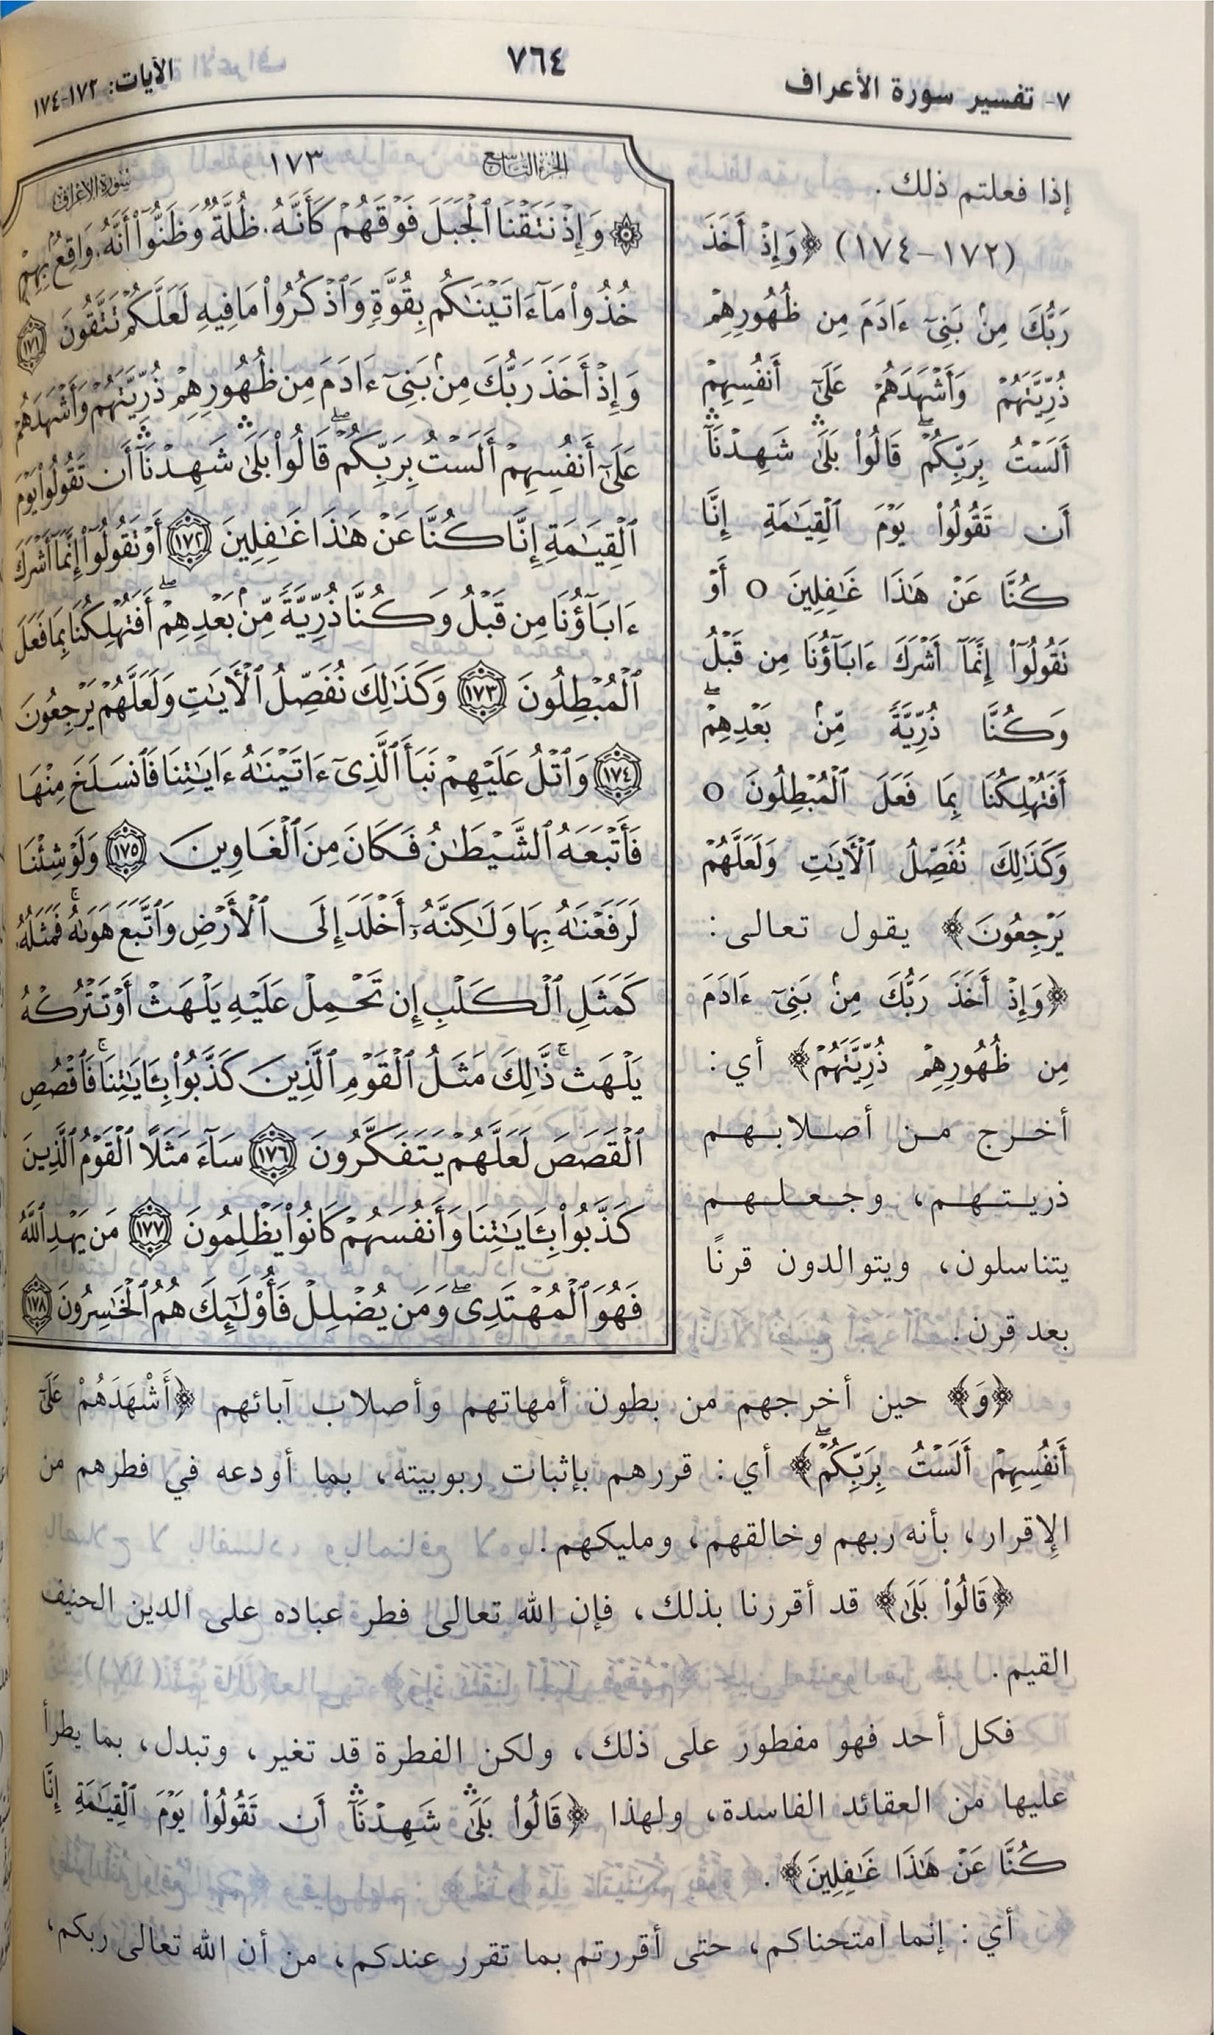 ٧- تفسير سورة الأعراف
٧٦٤
الآيات: ١٧٢-١٧٤
إذا فعلتم ذلك.
(١٧٢-١٧٤) ﴿وَإِذْ أَخَذَ
رَبُّكَ مِنۢ بَنِىٓ ءَادَمَ مِن ظُهُورِهِمْ
ذُرِّيَّتَهُمْ وَأَشْهَدَهُمْ عَلَىٰٓ أَنفُسِهِمْ
أَلَسْتُ بِرَبِّكُمْ ۖ قَالُوا۟ بَلَىٰ ۛ شَهِدْنَآ ۛ
أَن تَقُولُوا۟ يَوْمَ ٱلْقِيَٰمَةِ إِنَّا
كُنَّا عَنْ هَٰذَا غَٰفِلِينَ ○ أَوْ
تَقُولُوٓا۟ إِنَّمَآ أَشْرَكَ ءَابَآؤُنَا مِن قَبْلُ
وَكُنَّا ذُرِّيَّةً مِّنۢ بَعْدِهِمْ ۖ
أَفَتُهْلِكُنَا بِمَا فَعَلَ ٱلْمُبْطِلُونَ ○
وَكَذَٰلِكَ نُفَصِّلُ ٱلْءَايَٰتِ وَلَعَلَّهُمْ
يَرْجِعُونَ﴾ يقول تعالى:
﴿وَإِذْ أَخَذَ رَبُّكَ مِنۢ بَنِىٓ ءَادَمَ
مِن ظُهُورِهِمْ ذُرِّيَّتَهُمْ﴾ أي:
أخرج من أصلابهم
ذريتهم، وجعلهم
يتناسلون، ويتوالدون قرنًا
بعد قرن.
سُورَةُ الأَعْرَافِ
١٧٣
الجُزْءُ التَّاسِعُ
۞ وَإِذْ نَتَقْنَا ٱلْجَبَلَ فَوْقَهُمْ كَأَنَّهُۥ ظُلَّةٌ وَظَنُّوٓا۟ أَنَّهُۥ وَاقِعٌۢ بِهِمْ
خُذُوا۟ مَآ ءَاتَيْنَٰكُم بِقُوَّةٍ وَٱذْكُرُوا۟ مَا فِيهِ لَعَلَّكُمْ تَتَّقُونَ ١٧١
وَإِذْ أَخَذَ رَبُّكَ مِنۢ بَنِىٓ ءَادَمَ مِن ظُهُورِهِمْ ذُرِّيَّتَهُمْ وَأَشْهَدَهُمْ
عَلَىٰٓ أَنفُسِهِمْ أَلَسْتُ بِرَبِّكُمْ ۖ قَالُوا۟ بَلَىٰ ۛ شَهِدْنَآ ۛ أَن تَقُولُوا۟ يَوْمَ
ٱلْقِيَٰمَةِ إِنَّا كُنَّا عَنْ هَٰذَا غَٰفِلِينَ ١٧٢ أَوْ تَقُولُوٓا۟ إِنَّمَآ أَشْرَكَ
ءَابَآؤُنَا مِن قَبْلُ وَكُنَّا ذُرِّيَّةً مِّنۢ بَعْدِهِمْ ۖ أَفَتُهْلِكُنَا بِمَا فَعَلَ
ٱلْمُبْطِلُونَ ١٧٣ وَكَذَٰلِكَ نُفَصِّلُ ٱلْءَايَٰتِ وَلَعَلَّهُمْ يَرْجِعُونَ
١٧٤ وَٱتْلُ عَلَيْهِمْ نَبَأَ ٱلَّذِىٓ ءَاتَيْنَٰهُ ءَايَٰتِنَا فَٱنسَلَخَ مِنْهَا
فَأَتْبَعَهُ ٱلشَّيْطَٰنُ فَكَانَ مِنَ ٱلْغَاوِينَ ١٧٥ وَلَوْ شِئْنَا
لَرَفَعْنَٰهُ بِهَا وَلَٰكِنَّهُۥٓ أَخْلَدَ إِلَى ٱلْأَرْضِ وَٱتَّبَعَ هَوَىٰهُ ۚ فَمَثَلُهُۥ
كَمَثَلِ ٱلْكَلْبِ إِن تَحْمِلْ عَلَيْهِ يَلْهَثْ أَوْ تَتْرُكْهُ
يَلْهَث ۚ ذَّٰلِكَ مَثَلُ ٱلْقَوْمِ ٱلَّذِينَ كَذَّبُوا۟ بِـَٔايَٰتِنَا ۚ فَٱقْصُصِ
ٱلْقَصَصَ لَعَلَّهُمْ يَتَفَكَّرُونَ ١٧٦ سَآءَ مَثَلًا ٱلْقَوْمُ ٱلَّذِينَ
كَذَّبُوا۟ بِـَٔايَٰتِنَا وَأَنفُسَهُمْ كَانُوا۟ يَظْلِمُونَ ١٧٧ مَن يَهْدِ ٱللَّهُ
فَهُوَ ٱلْمُهْتَدِى ۖ وَمَن يُضْلِلْ فَأُو۟لَٰٓئِكَ هُمُ ٱلْخَٰسِرُونَ ١٧٨
﴿وَ﴾ حين أخرجهم من بطون أمهاتهم وأصلاب آبائهم ﴿أَشْهَدَهُمْ عَلَىٰٓ
أَنفُسِهِمْ أَلَسْتُ بِرَبِّكُمْ ۖ﴾ أي: قررهم بإثبات ربوبيته، بما أودعه في فطرهم من
الإقرار، بأنه ربهم وخالقهم، ومليكهم.
﴿قَالُوا۟ بَلَىٰ﴾ قد أقررنا بذلك، فإن الله تعالى فطر عباده على الدين الحنيف
القيم.
فكل أحد فهو مفطور على ذلك، ولكن الفطرة قد تغير، وتبدل، بما يطرأ
عليها من العقائد الفاسدة، ولهذا ﴿قَالُوا۟ بَلَىٰ ۛ شَهِدْنَآ ۛ أَن تَقُولُوا۟ يَوْمَ ٱلْقِيَٰمَةِ إِنَّا
كُنَّا عَنْ هَٰذَا غَٰفِلِينَ﴾.
أي: إنما امتحناكم، حتى أقررتم بما تقرر عندكم، من أن الله تعالى ربكم،